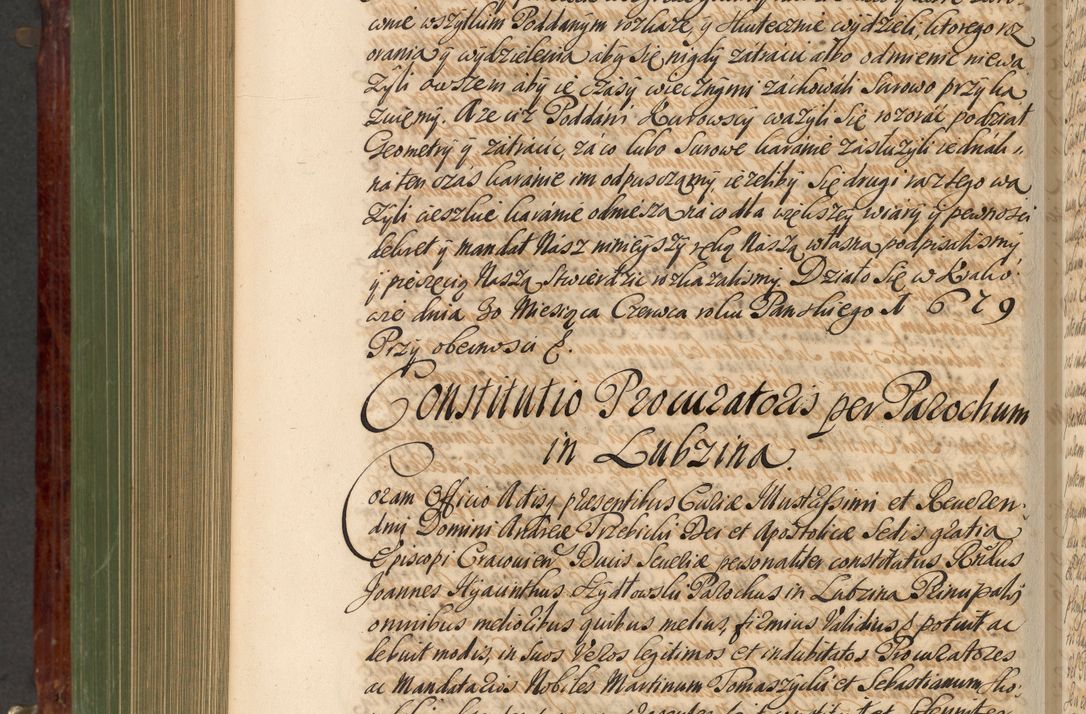 wnie wszytkim Poddanym rozkaże, y skutecznie wydzieli, ktorego roz
orania y wydzielenia aby się nigdy zatracic albo odmienic niewa
żyli owszem aby ie czasy wiecznymi zachowali surowo przyka
zuięmy. Aże ciż Poddani Kurowscy ważyli się rozorać podział
Geometry y zatracic, zaco lubo surowe karanie zasłużyli iednak
na ten czas karanie im odpusczamy ieżeliby się drugi raz tego wa
żyli cieszkie karanie odniesza na co dla większey wiary y pewnosci
dekret y mandat Nasz ninieyszy ręką Naszą własną podpisalismy
y pieczęcią Naszą stwierdzic rozkazalismy. Działo się w Krako
wie dnia 30 Miesiąca Czerwca roku Panskiego 1679
Przy obecnosci &.
Constitutio Procuratoris per Parochum
in Lubzina.
Coram Officio Actisq presentibus Curiæ Illustrissimi et Reueren-
dmi Domini Andreæ Trzebicki Dei et Apostolicæ Sedis gratia
Episcopi Cracouien Ducis Seueriæ personaliter constitutus Rndus
Joannes Hyacinthus Szydłowski Parochus in Lubzina Principalis
omnibus melioribus quibus melius, firmius Validiusq potuit ac
debuit modis, in suos Veros legitimos et indubitatos Procuratores
ac Mandatarios Nobiles Martinum Tomaszycki et Sebastianum